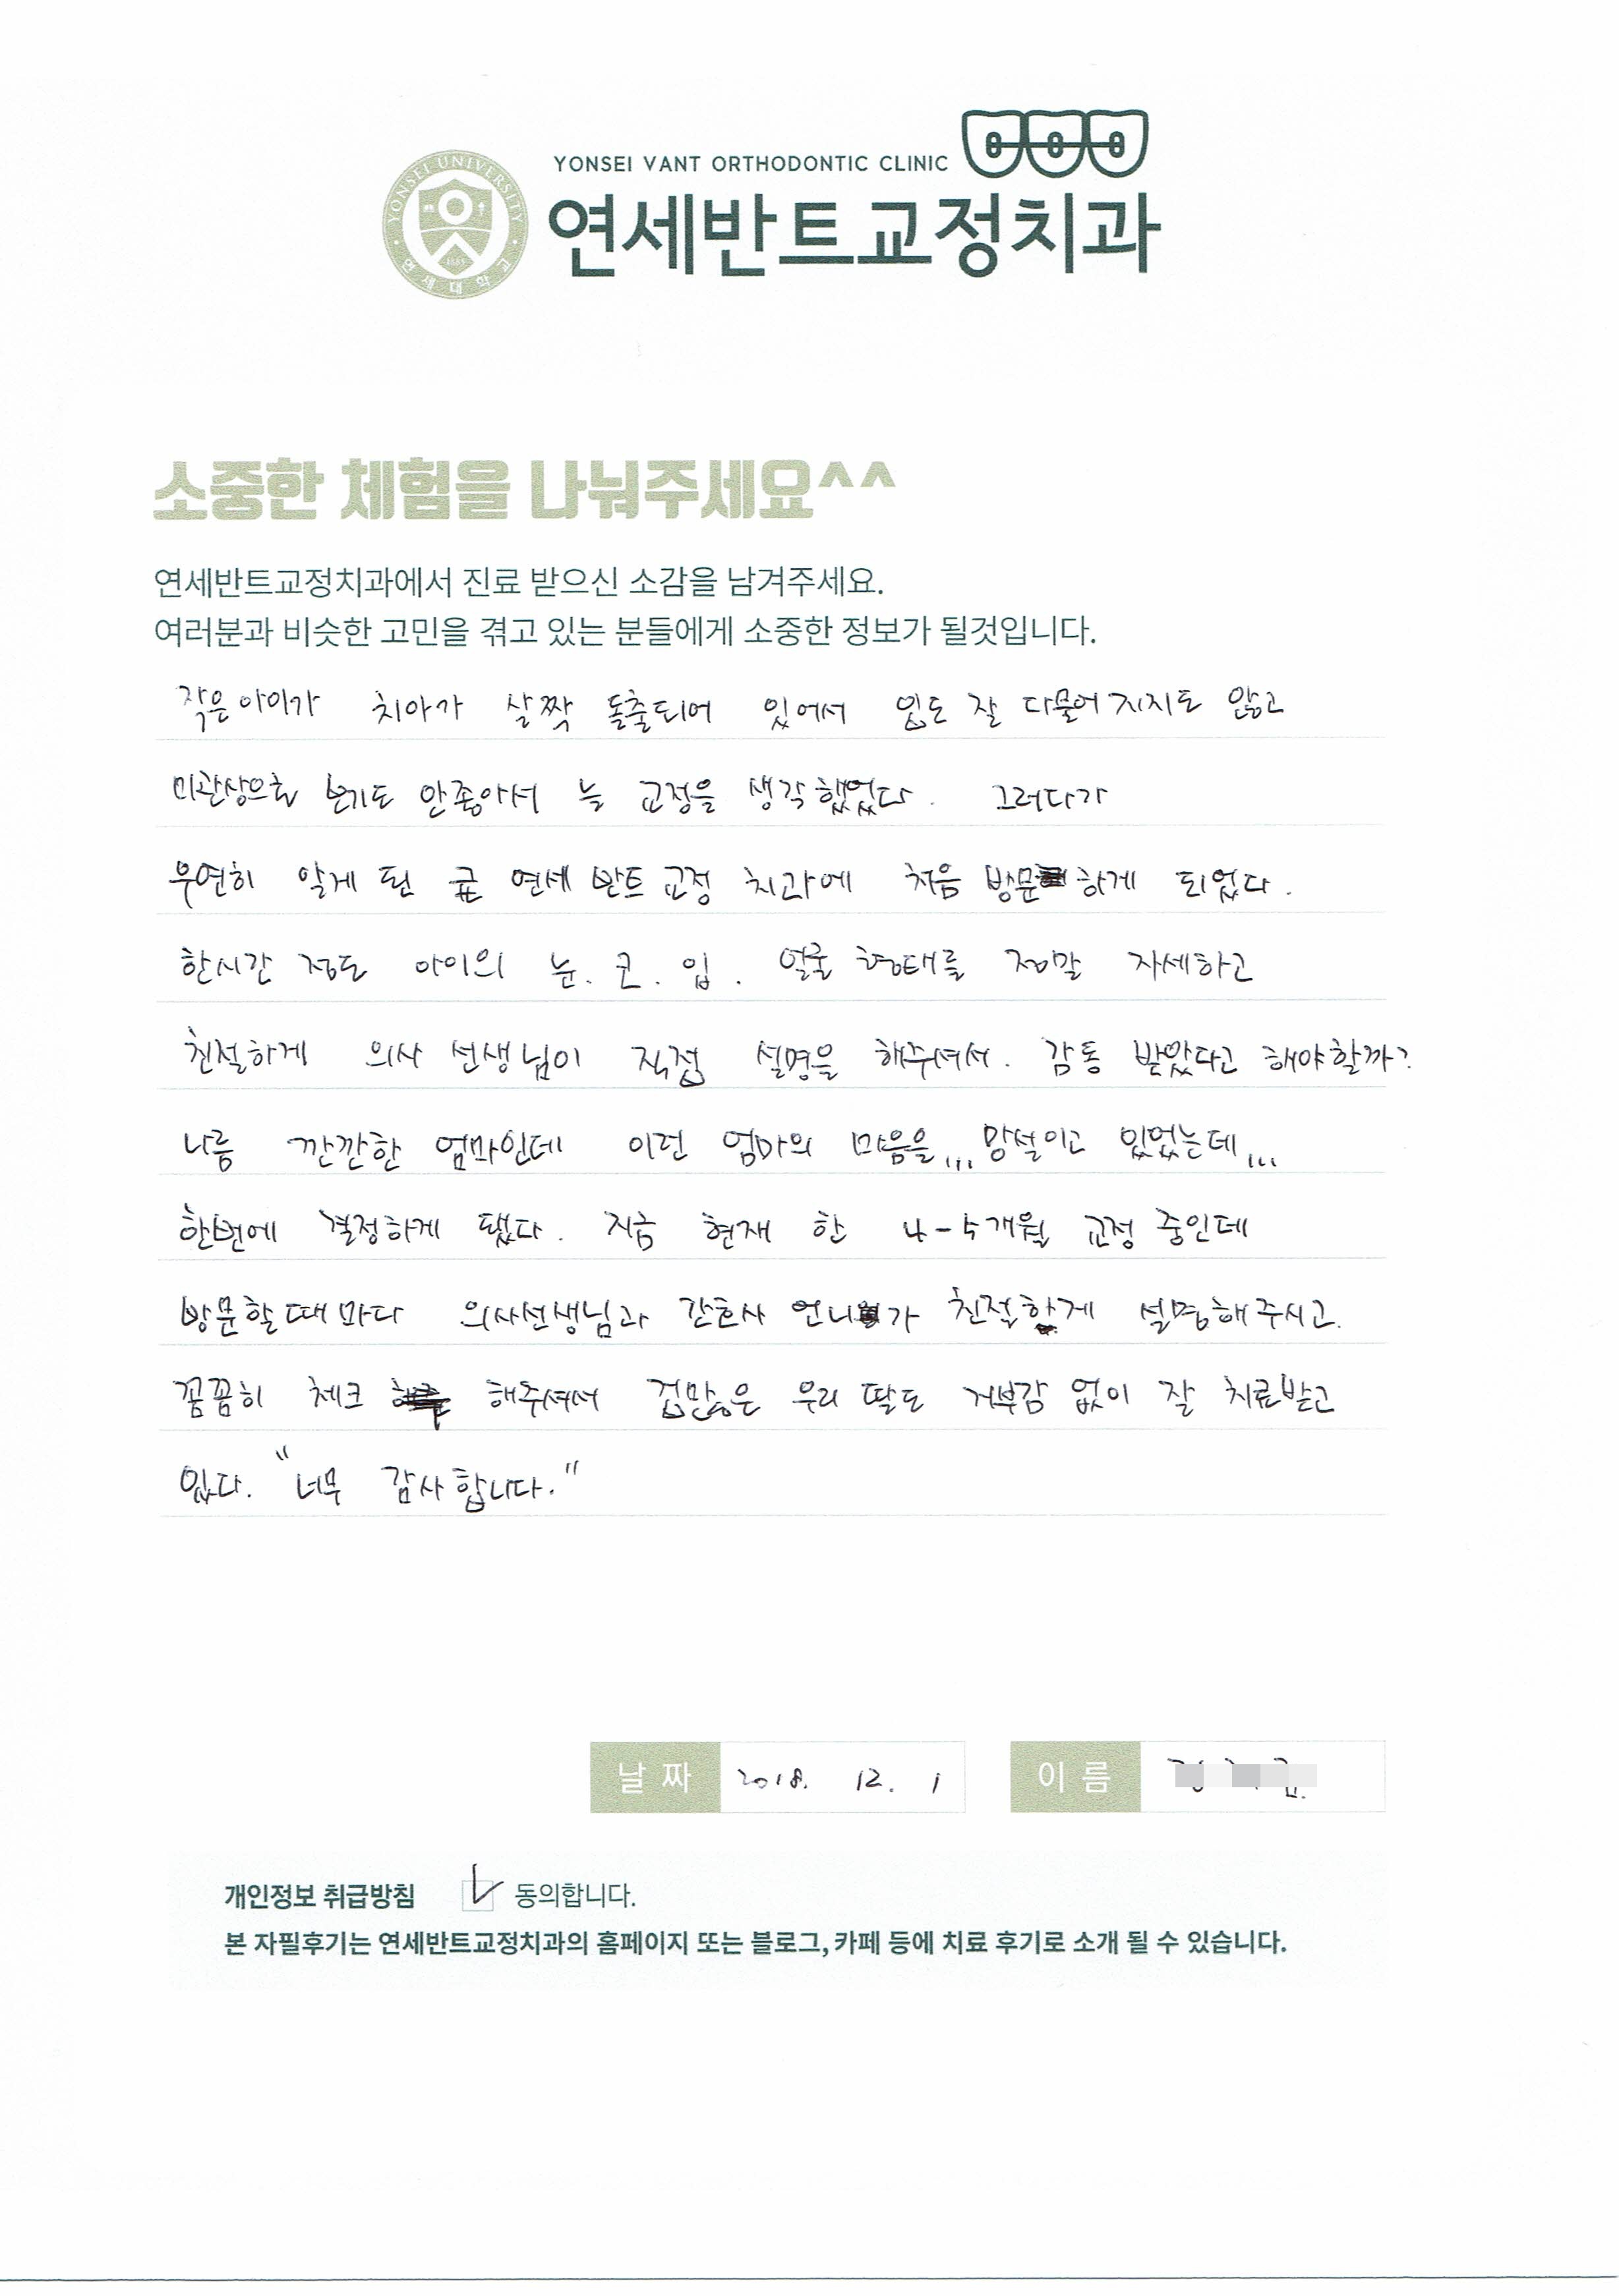 YONSEI VANT ORTHODONTIC CLINIC
연세반트교정치과
YONSEI UNIVERSITY
1885
연세대학교
소중한 체험을 나눠주세요^^
연세반트교정치과에서 진료 받으신 소감을 남겨주세요.
여러분과 비슷한 고민을 겪고 있는 분들에게 소중한 정보가 될것입니다.
작은아이가 치아가 살짝 돌출되어 있어서 입도 잘 다물어지지도 않고
미관상으로 보기도 안좋아서 늘 교정을 생각했었다. 그러다가
우연히 알게 된 곳 연세 반트 교정 치과에 처음 방문하게 되었다.
한시간 정도 아이의 눈. 코. 입. 얼굴 형태를 정말 자세하고
친절하게 의사 선생님이 직접 설명을 해주셔서. 감동 받았다고 해야할까?
나름 깐깐한 엄마인데 이런 엄마의 마음을,,, 망설이고 있었는데,,,
한번에 결정하게 됐다. 지금 현재 한 4-5개월 교정 중인데
방문할때마다 의사선생님과 간호사 언니가 친절하게 설명해주시고.
꼼꼼히 체크 해주셔서 겁많은 우리 딸도 거부감 없이 잘 치료받고
있다. "너무 감사합니다."
날짜 2018. 12. 1 이름
개인정보 취급방침 동의합니다.
본 자필후기는 연세반트교정치과의 홈페이지 또는 블로그, 카페 등에 치료 후기로 소개 될 수 있습니다.